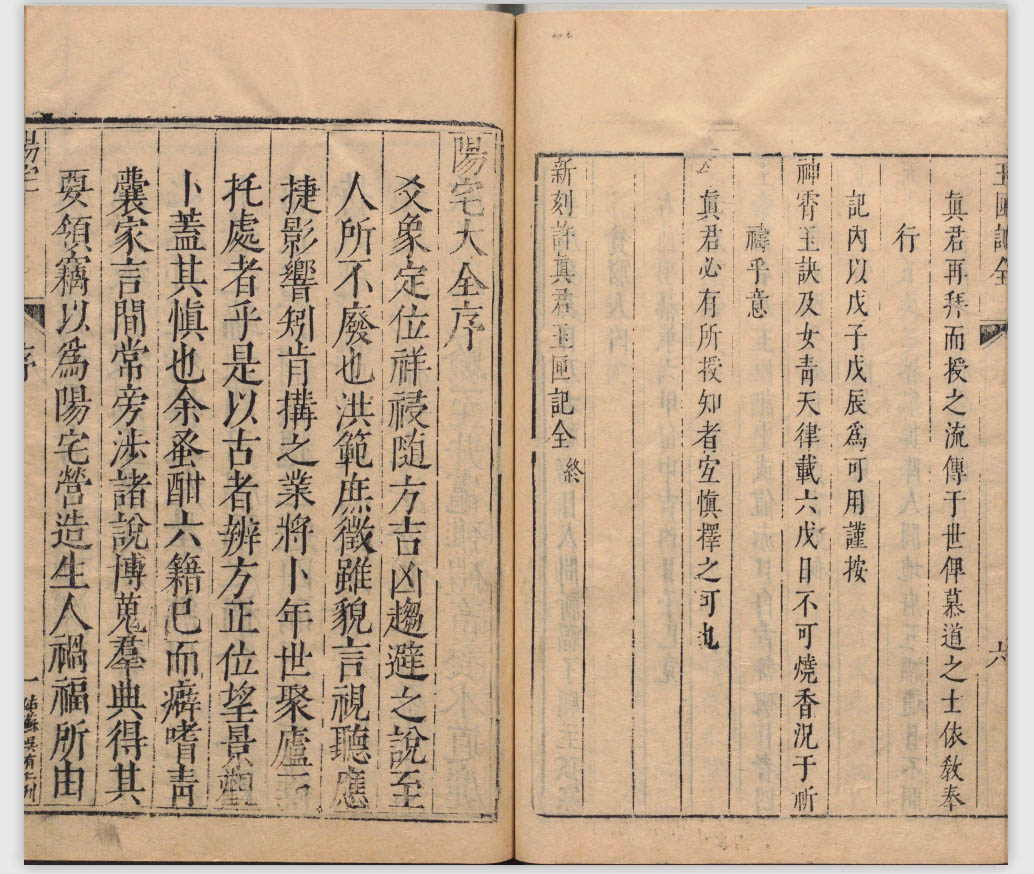 玉匣記全
六
真君再拜而授之流傳于世俾慕道之士依教奉
行
記內以戊子戊辰爲可用謹按
神霄玉訣及女青天律載六戊日不可燒香況于祈
禱乎意
真君必有所授知者宜慎擇之可也
新刻許真君玉匣記全終
陽宅大全序
爻象定位祥祲随方吉凶趨避之說至
人所不廢也洪範庶徵雖貌言視聽應
捷影響矧肯搆之業將卜年世聚廬而
托處者乎是以古者辨方正位望景觀
卜蓋其慎也余蚤酣六籍已而癖嗜青
囊家言間常旁涉諸說博蒐羣典得其
要領竊以爲陽宅營造生人禍福所由
陽宅
序
一
姑蘇吳有仁刊